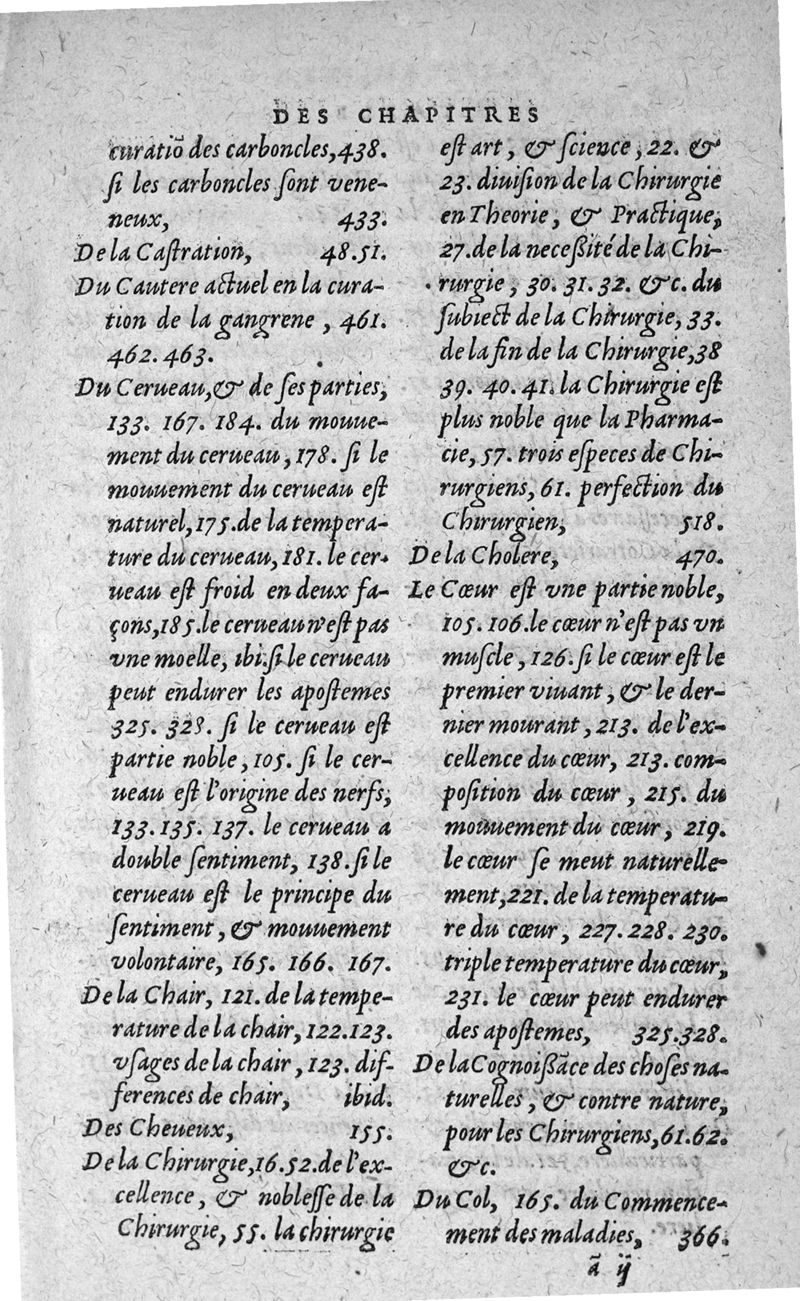 DES CHAPITRES
curatiõ des carboncles, 438.
ſi les carboncles ſont vene-
neux, 433.
De la Caſtration, 48.51.
Du Cautere actuel en la cura-
tion de la gangrene, 461.
462. 463.
Du Cerueau, & de ſes parties,
133. 167. 184. du mouue-
ment du cerueau, 178. ſi le
mouuement du cerueau eſt
naturel, 175. de la tempera-
ture du cerueau, 181. le cer-
ueau eſt froid en deux fa-
çons, 185. le cerueau n'eſt pas
vne moelle, ibi. ſi le cerueau
peut endurer les apoſtemes
325. 328. ſi le cerueau eſt
partie noble, 105. ſi le cer-
ueau eſt l'origine des nerfs,
133. 135. 137. le cerueau a
double ſentiment, 138. ſi le
cerueau eſt le principe du
ſentiment, & mouuement
volontaire, 165. 166. 167.
De la Chair, 121. de la tempe-
rature de la chair, 122.123.
vſages de la chair, 123. dif-
ferences de chair, ibid.
Des Cheueux, 155.
De la Chirurgie, 16.52. de l'ex-
cellence, & nobleſſe de la
Chirurgie, 55. la chirurgie
eſt art, & ſcience, 22. &
23. diuiſion de la Chirurgie
en Theorie, & Practique,
27. de la neceßité de la Chi-
rurgie, 30. 31. 32. &c. du
ſubiect de la Chirurgie, 33.
de la fin de la Chirurgie, 38
39. 40. 41. la Chirurgie eſt
plus noble que la Pharma-
cie, 57. trois eſpeces de Chi-
rurgiens, 61. perfection du
Chirurgien, 518.
De la Cholere, 470.
Le Cœur eſt vne partie noble,
105. 106. le cœur n'eſt pas vn
muſcle, 126. ſi le cœur eſt le
premier viuant, & le der-
nier mourant, 213. de l'ex-
cellence du cœur, 213. com-
poſition du cœur, 215. du
mouuement du cœur, 219.
le cœur ſe meut naturelle-
ment, 221. de la temperatu-
re du cœur, 227. 228. 230.
triple temperature du cœur,
231. le cœur peut endurer
des apoſtemes, 325.328.
De la Cognoißãce des choſes na-
turelles, & contre nature,
pour les Chirurgiens, 61.62.
&c.
Du Col, 165. du Commence-
ment des maladies, 366.
ã ij